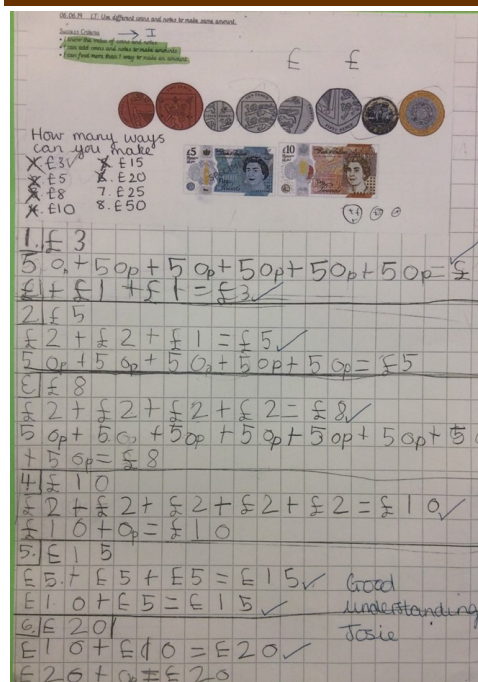 06.06.19 LT: Use different coins and notes to make same amount.
Success Criteria → I
• I know the value of coins and notes
• I can add coins and notes to make amounts
• I can find more than 1 way to make an amount
£ £
How many ways
can you make
1. £3 5. £15
2. £5 6. £20
3. £8 7. £25
4. £10 8. £50
£5 £10
1. £3
50p + 50p + 50p + 50p + 50p + 50p = £
£1 + £1 + £1 = £3
2 £5
£2 + £2 + £1 = £5
50p + 50p + 50p + 50p + 50p = £5
3 £8
£2 + £2 + £2 + £2 = £8
50p + 50p + 50p + 50p + 50p + 50p + 50
+ 50p = £8
4. £10
£2 + £2 + £2 + £2 + £2 = £10
£10 + 0p = £10
5. £15
£5 + £5 + £5 = £15
£10 + £5 = £15
Good
understanding
Josie
6. £20
£10 + £10 = £20
£20 + 0p = £20